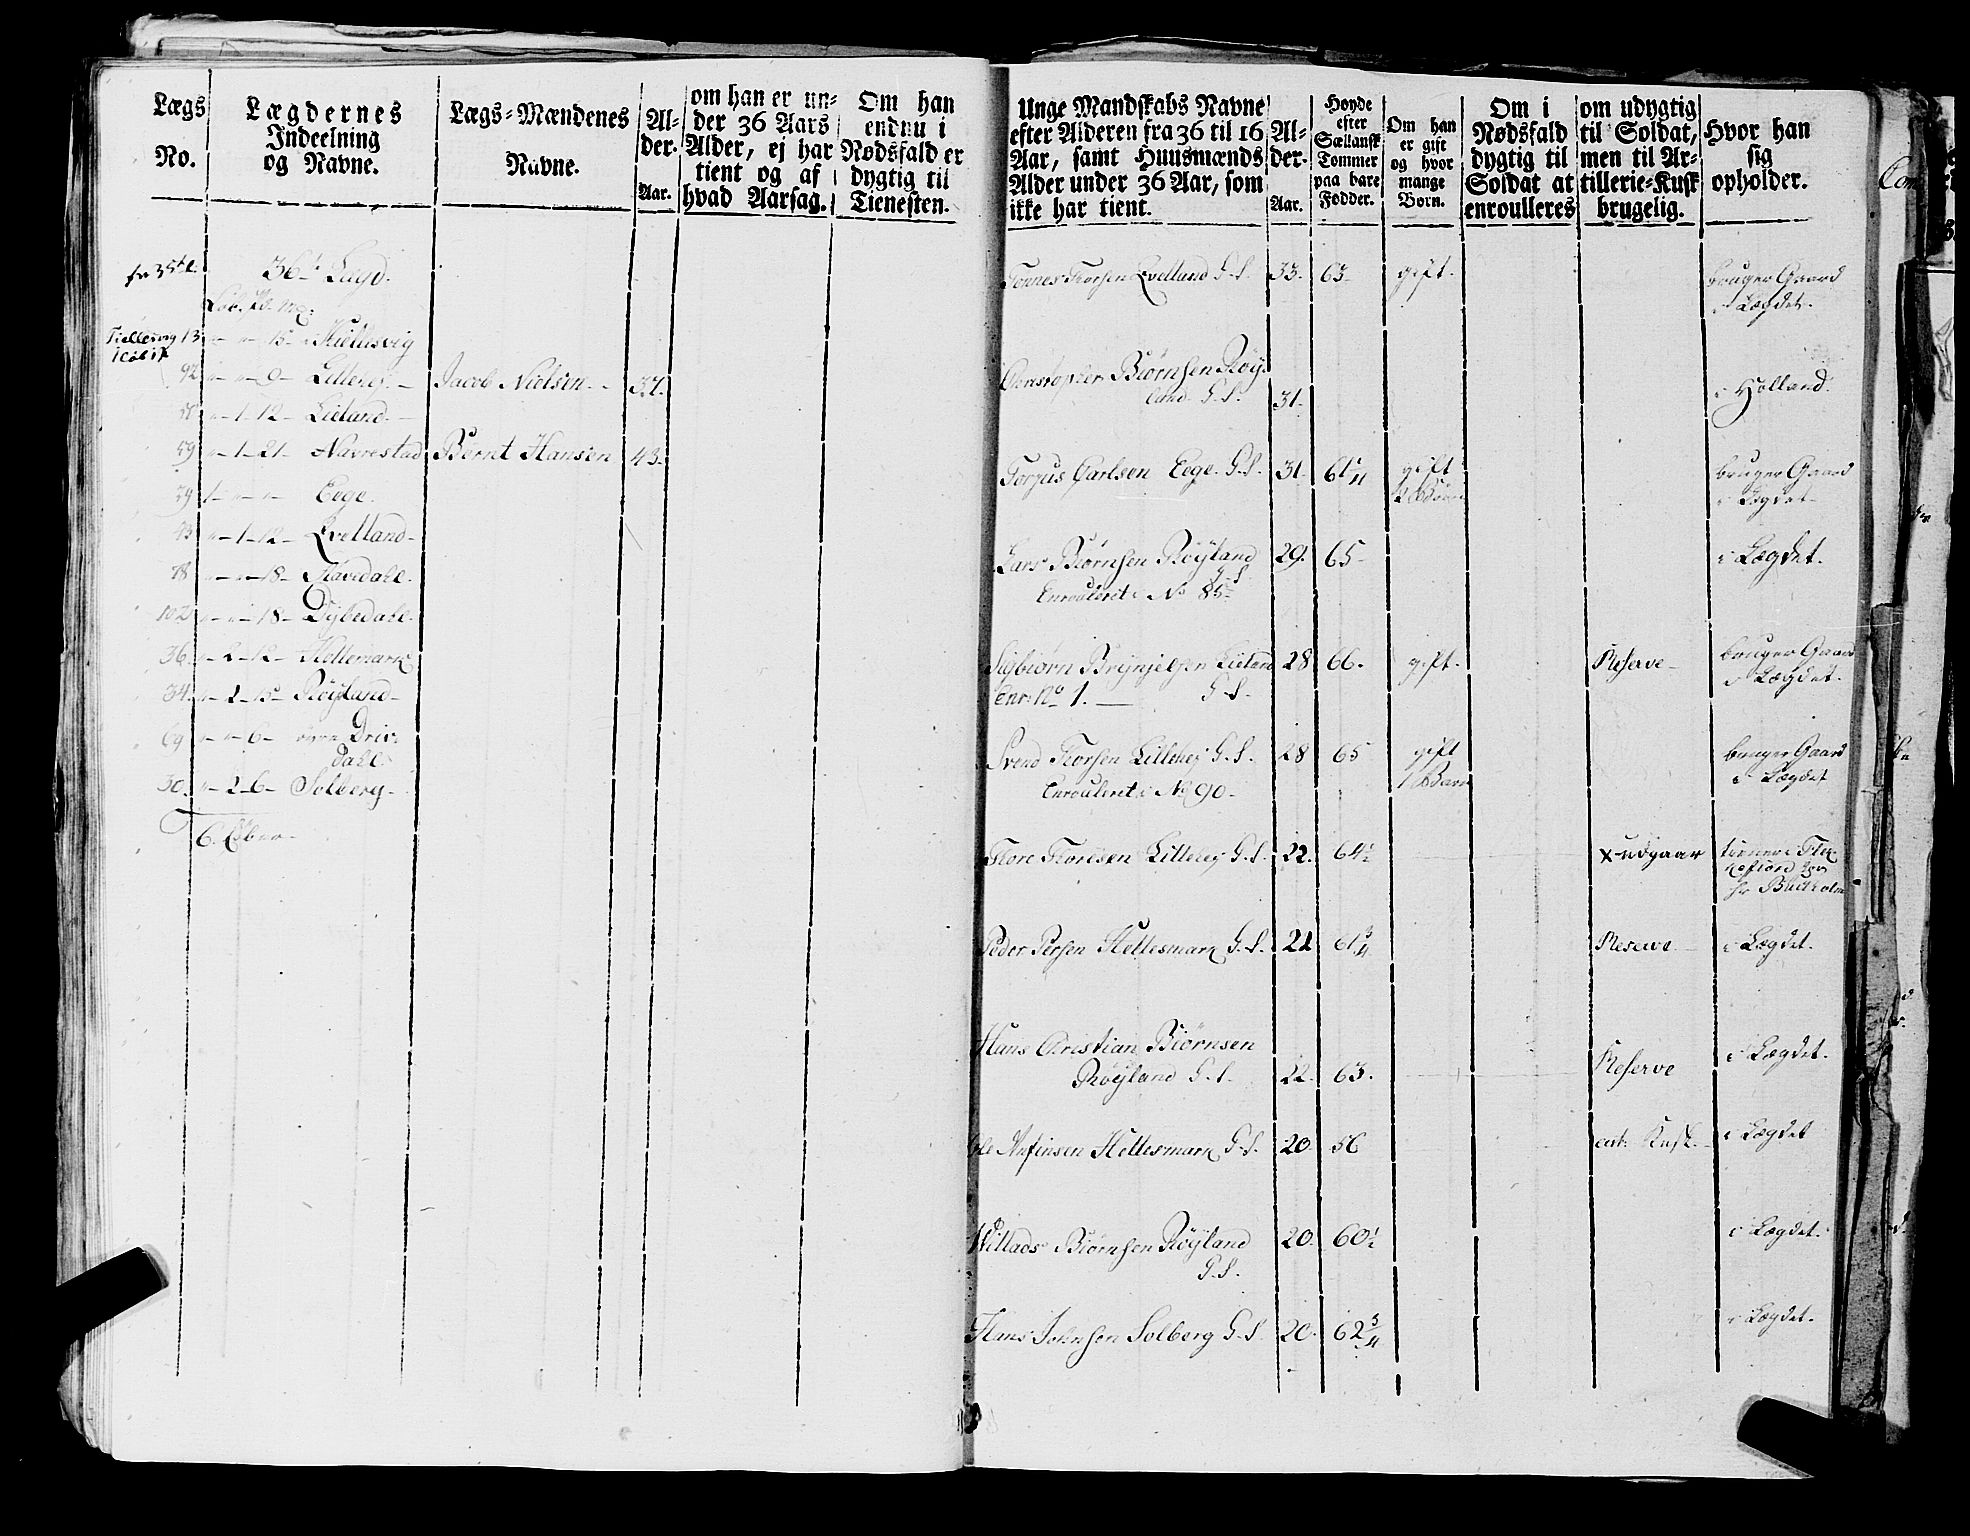 Lægs
No.
Lægdernes
Indeelning
og Navne.
Lægs-Mændenes
Navne.
Al-
der.
Aar.
om han er un-
der 36 Aars
Alder, ej har
tient og af
hvad Aarsag.
Om han
endnu i
Nødsfald er
dygtig til
Tienesten.
36te Lægd.
15 - Hielmsvig
92 9 - Lillehej -
Jacob Nielsen - 37.
1 - 12 - Lieland -
59 1 - 21 - Navrestad
Bernt Hansen 43.
59 1 - Eege.
43 1 - 12 - Qvelland -
78 18 -
102 18 - Dybedahl.
36 2 - 12 - Hellemark
34 2 - 15 - Røyland -
69 6 - Driv-
dahl.
30. 2 - 6 - Solberg -
6. Løber -
Unge Mandskabs Navne
efter Alderen fra 36 til 16
Aar, samt Huusmænds
Alder under 36 Aar, som
ikke har tient.
Al-
der.
Aar.
Høyde
efter
Sællansk
Tommer
paa bare
Fødder.
Om han
er gift
og hvor
mange
Børn.
Om i
Nødsfald
dygtig til
Soldat at
enroulleres
om udygtig
til Soldat,
men til Ar-
tillerie-Kusk
brugelig.
Hvor han
sig
opholder.
Tønnes Torsen Qvelland G. S. 33. 63 - gift. bruger Gaard
i Lægdet.
Christopher Biørnsen Røy-
land G. S. 31. i Holland.
Torjus Carlsen Eege. G. S. 31. 61 1/4 gift bruger Gaard
2 Børn i Lægdet -
Lars Biørnsen Røyland 29. 65 - i Lægdet.
G. S.
Enroulert i No 85 -
Sigbiørn Brynjelsen Lieland 28 66. gift. Reserve - bruger Gaard
Enr: No 1. - G. S. i Lægdet.
Svend Torsen Lillehej G. S. 28 65 gift bruger Gaard
Enroulert i No 90 - 1 Barn i Lægdet
Tore Toresen Lillehej G. S. 22. 64 1/2 x udgaar tiener i Flek-
kefiord hos
Hr
Peder Persen Hellesmark G. S. 21 61 3/4 Reserve i Lægdet.
Hans Christian Biørnsen
Røyland G. S. 22. 63. Reserve i Lægdet.
Ole Anfinsen Hellesmark G. S. 20. 56 art: Kusk. i Lægdet
Willads Biørnsen Røyland 20. 60 1/2 i Lægdet.
G. S.
Hans Johnsen Solberg G. S. 20. 62 3/4 i Lægdet.